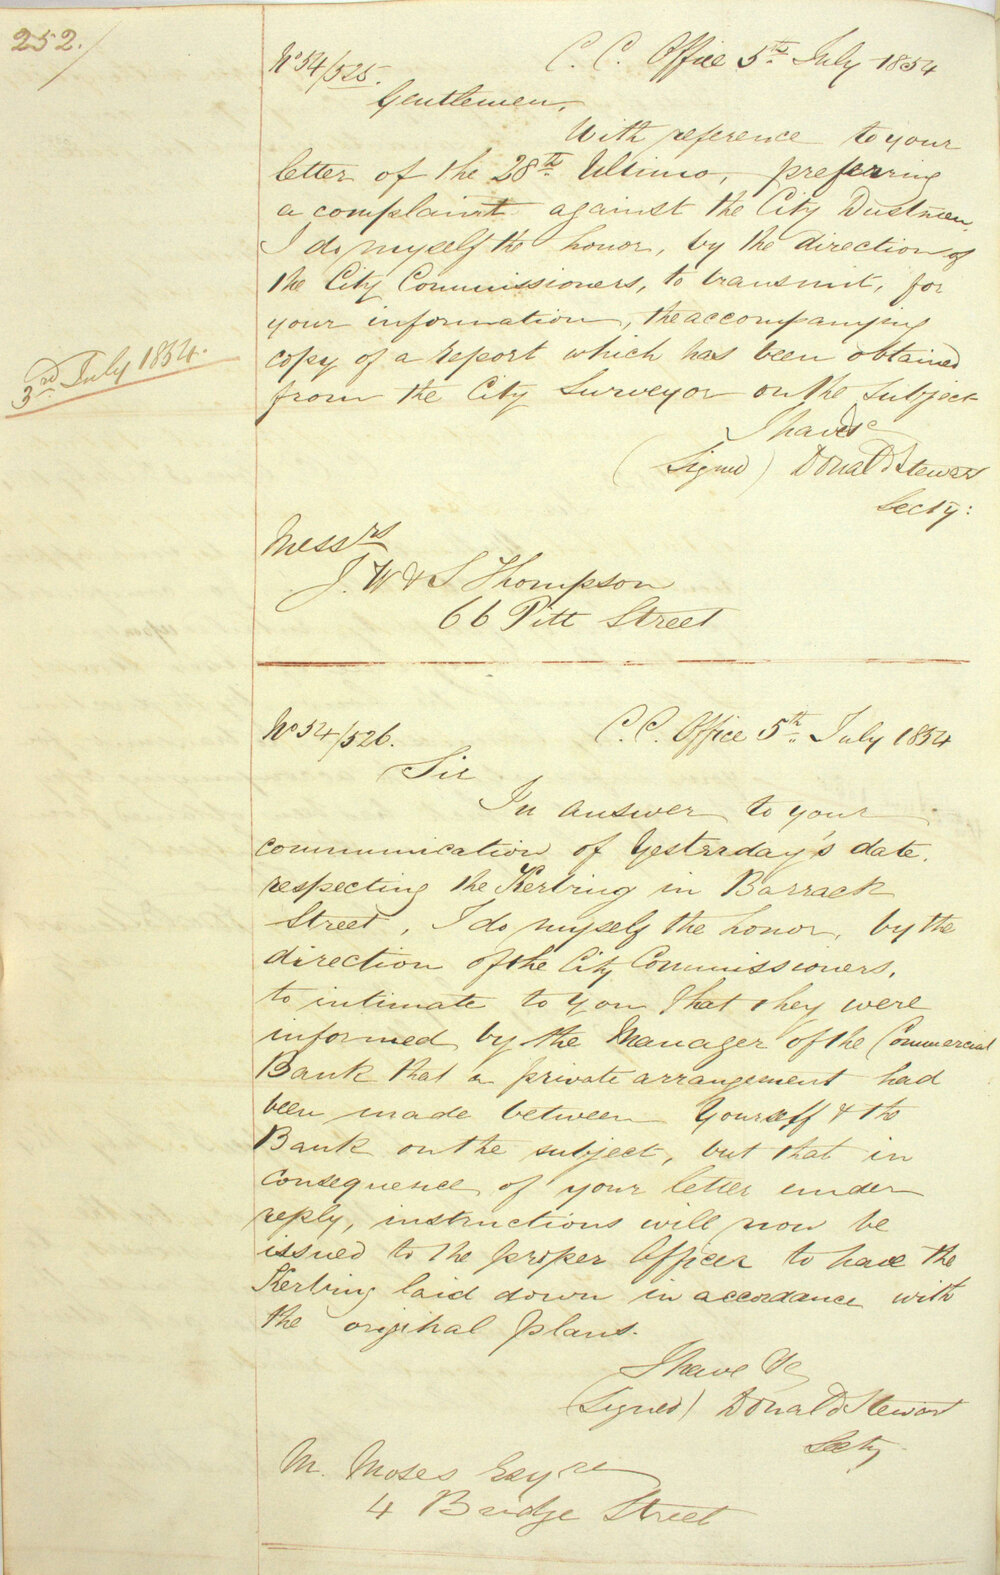 252.
No 54/525.
C. C. Office 5th July 1854
Gentlemen,
With reference to your
letter of the 28th Ultimo, preferring
a complaint against the City Dustmen,
I do myself the honor, by the direction of
the City Commissioners, to transmit, for
your information, the accompanying
3rd July 1854.
copy of a report which has been obtained
from the City Surveyor on the subject
I have &c
(Signed) Donald Stewart
Secty:
Messrs
J. W & S Thompson
66 Pitt Street
No 54/526.
C. C. Office 5th July 1854
Sir
In answer to your
communication of Yesterday's date,
respecting the Kerbing in Barrack
Street, I do myself the honor, by the
direction of the City Commissioners,
to intimate to you that they were
informed by the Manager of the Commercial
Bank that a private arrangement had
been made between Yourself & the
Bank on the subject, but that in
consequence of your letter under
reply, instructions will now be
issued to the proper Officer to have the
Kerbing laid down in accordance with
the original plans.
I have &c
(Signed) Donald Stewart
Secty
M. Moses Esqre
4 Bridge Street